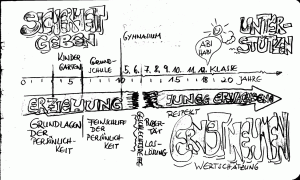 SICHERHEIT
GEBEN
KINDER
GARTEN
GRUND-
SCHULE
GYMNASIUM
5., 6., 7., 8., 9., 10., 11., 12. KLASSE
ABI
HABI
UNTER-
STÜTZEN
0 5 10 15 18 20 JAHRE
ERZIEHUNG
JUNGE ERWACHSENE
GRUNDLAGEN
DER
PERSÖNLICH-
KEIT
FEINSCHLIFF
DER
PERSÖNLICH-
KEIT
PUBER-
TÄT
LOS-
LÖSUNG
RESPEKT
ERNST NEHMEN
WERTSCHÄTZUNG